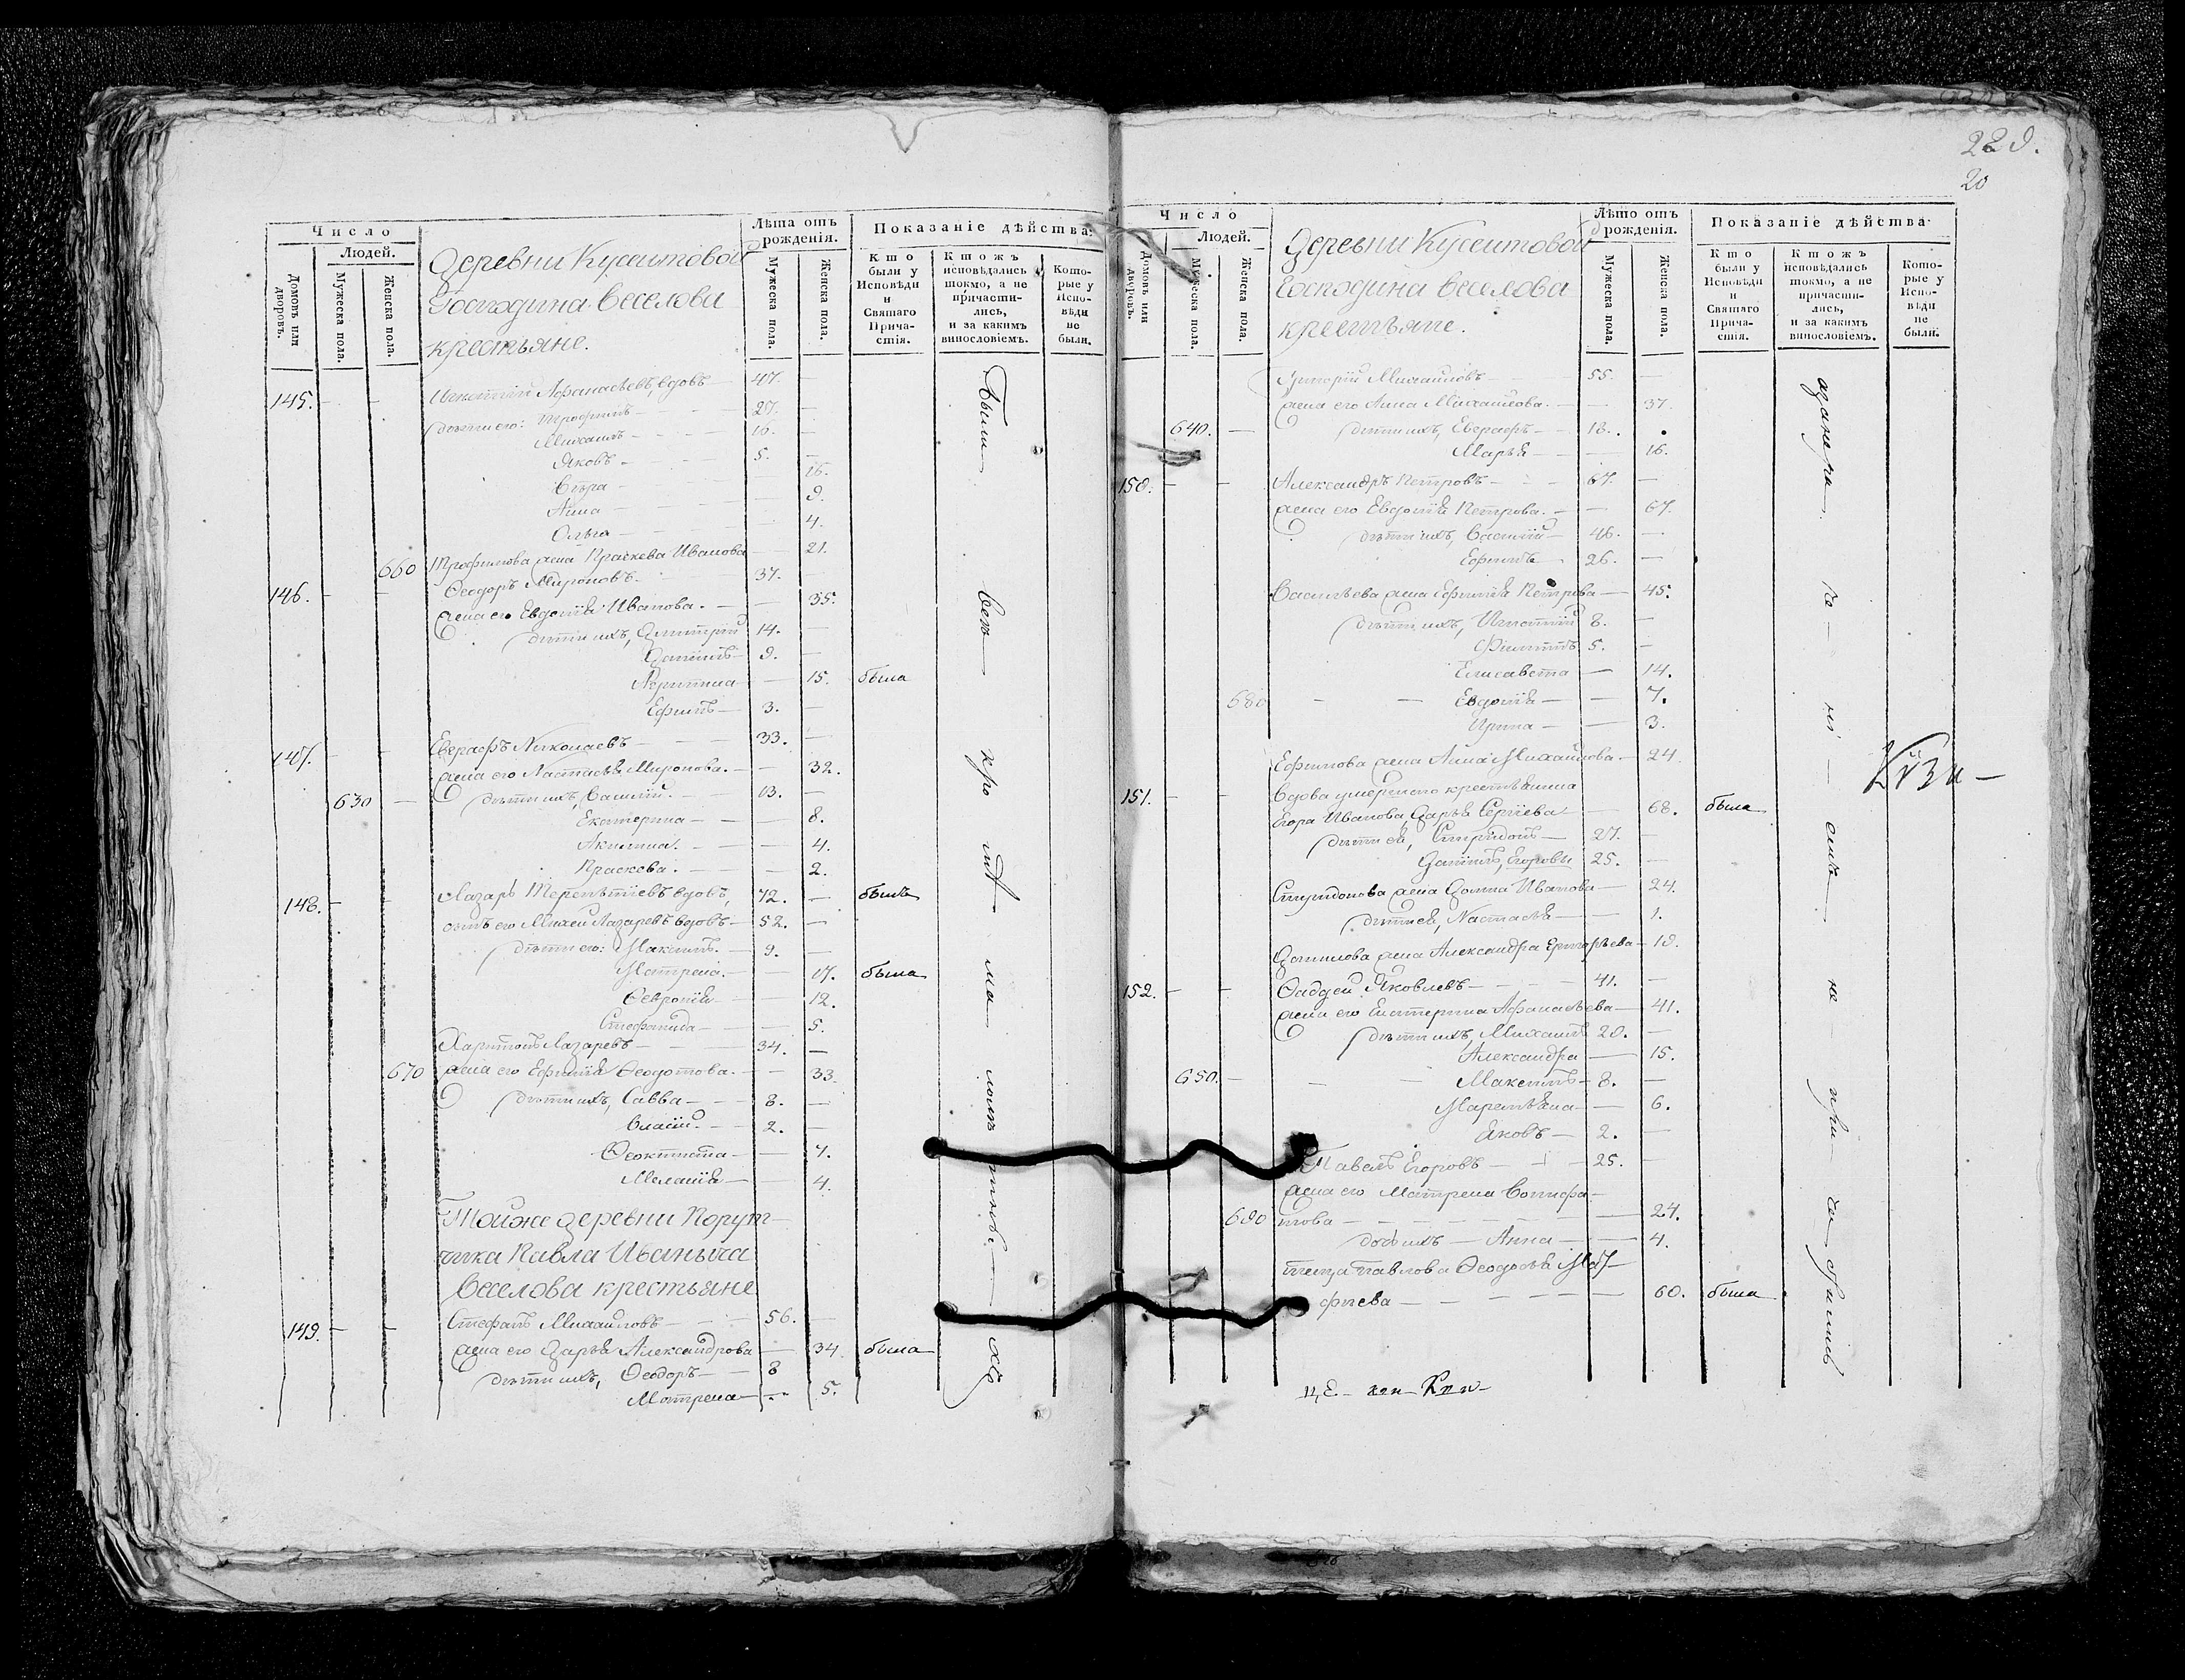 Число
Людей.
Домовъ или дворовъ.
Мужеска пола.
Женска пола.
Деревни Кусеитовой
Господина Веселова
крестьяне.
Лѣта отъ рожденія.
Мужеска пола.
Женска пола.
Показаніе дѣйства.
Кто были у Исповѣди и Святаго Причастія.
Ктожъ исповѣдались токмо, а не причастились, и за какимъ винословіемъ.
Которые у Исповѣди не были.
145. Игнатій Афанасьевъ, вдовъ 47.
дѣти его: Трофимъ 27.
Михаилъ 16.
Яковъ 5.
Вѣра 16.
Анна 9.
Ольга 4.
660 Трофимова жена Праскева Иванова 21.
146. Ѳеодоръ Мироновъ 37.
жена его Евдокія Иванова. 35.
дѣти ихъ, Димитрій 14.
Даніилъ 9.
Агрипина 15. была
Ефимъ 3.
147. Евграфъ Николаевъ 33.
жена его Настасья Миронова. 32.
630 дѣти ихъ, Василій. 13.
Екатерина 8.
Акилина. 4.
Праскева. 2.
148. Лазарь Терентіевъ вдовъ, 72. былъ
сынъ его Михей Лазаревъ вдовъ 52.
дѣти его: Максимъ. 9.
Матрена. 17. была
Февронія 12.
Стефанида 5.
Харитонъ Лазаревъ 34.
670 жена его Ефимія Ѳеодотова. 33.
дѣти ихъ, Савва 8.
Власій. 2.
Ѳеоктиста 7.
Меланія 4.
Тойже деревни Порут-
чика Павла Иваныча
Веселова крестьяне
149. Стефанъ Михаиловъ 56.
жена его Дарья Александрова 34. была
дѣти ихъ, Ѳеодоръ 8
Матрена 5.
Были
всѣ
229.
20
Число
Людей.
Домовъ или дворовъ.
Мужеска пола.
Женска пола.
Деревни Кусеитовой
Господина Веселова
крестьяне.
Лѣто отъ рожденія.
Мужеска пола.
Женска пола.
Показаніе дѣйства.
Кто были у Исповѣди и Святаго Причастія.
Ктожъ исповѣдались токмо, а не причастились, и за какимъ винословіемъ.
Которые у Исповѣди не были.
Григорій Михаиловъ 55.
жена его Анна Михаилова. 37.
640. дѣти ихъ, Евграфъ 18.
Марья 16.
150. Александръ Петровъ 67.
жена его Евдокія Петрова. 67.
дѣти ихъ, Василій 46.
Ефимъ 26.
Васильева жена Ефимія Петрова 45.
дѣти ихъ, Игнатій 8.
Филиппъ 5.
Елисавета 14.
680 Евдокія 7.
Ирина 3.
Ефимова жена Анна Михаилова 24
151. Вдова умершаго крестьянина
Егора Иванова, Дарья Сергіева 68. была
дѣти ея, Спиридонъ 27.
Даніилъ, Егоровы 25.
Спиридонова жена Домна Иванова 24.
дѣти ея, Настасья 1.
Даниилова жена Александра Григорьева 19.
152. Ѳаддей Яковлевъ 41.
жена его Екатерина Афанасьева 41.
дѣти ихъ, Михаилъ 20.
Александра 15.
650. Максимъ 8.
Маремьяна 6.
Яковъ 2.
Павелъ Егоровъ 25.
жена его Матрена Вонифа-
690 това 24.
дочь ихъ Анна 4.
теща Павлова Ѳеодосья Мат-
фиева 60. была